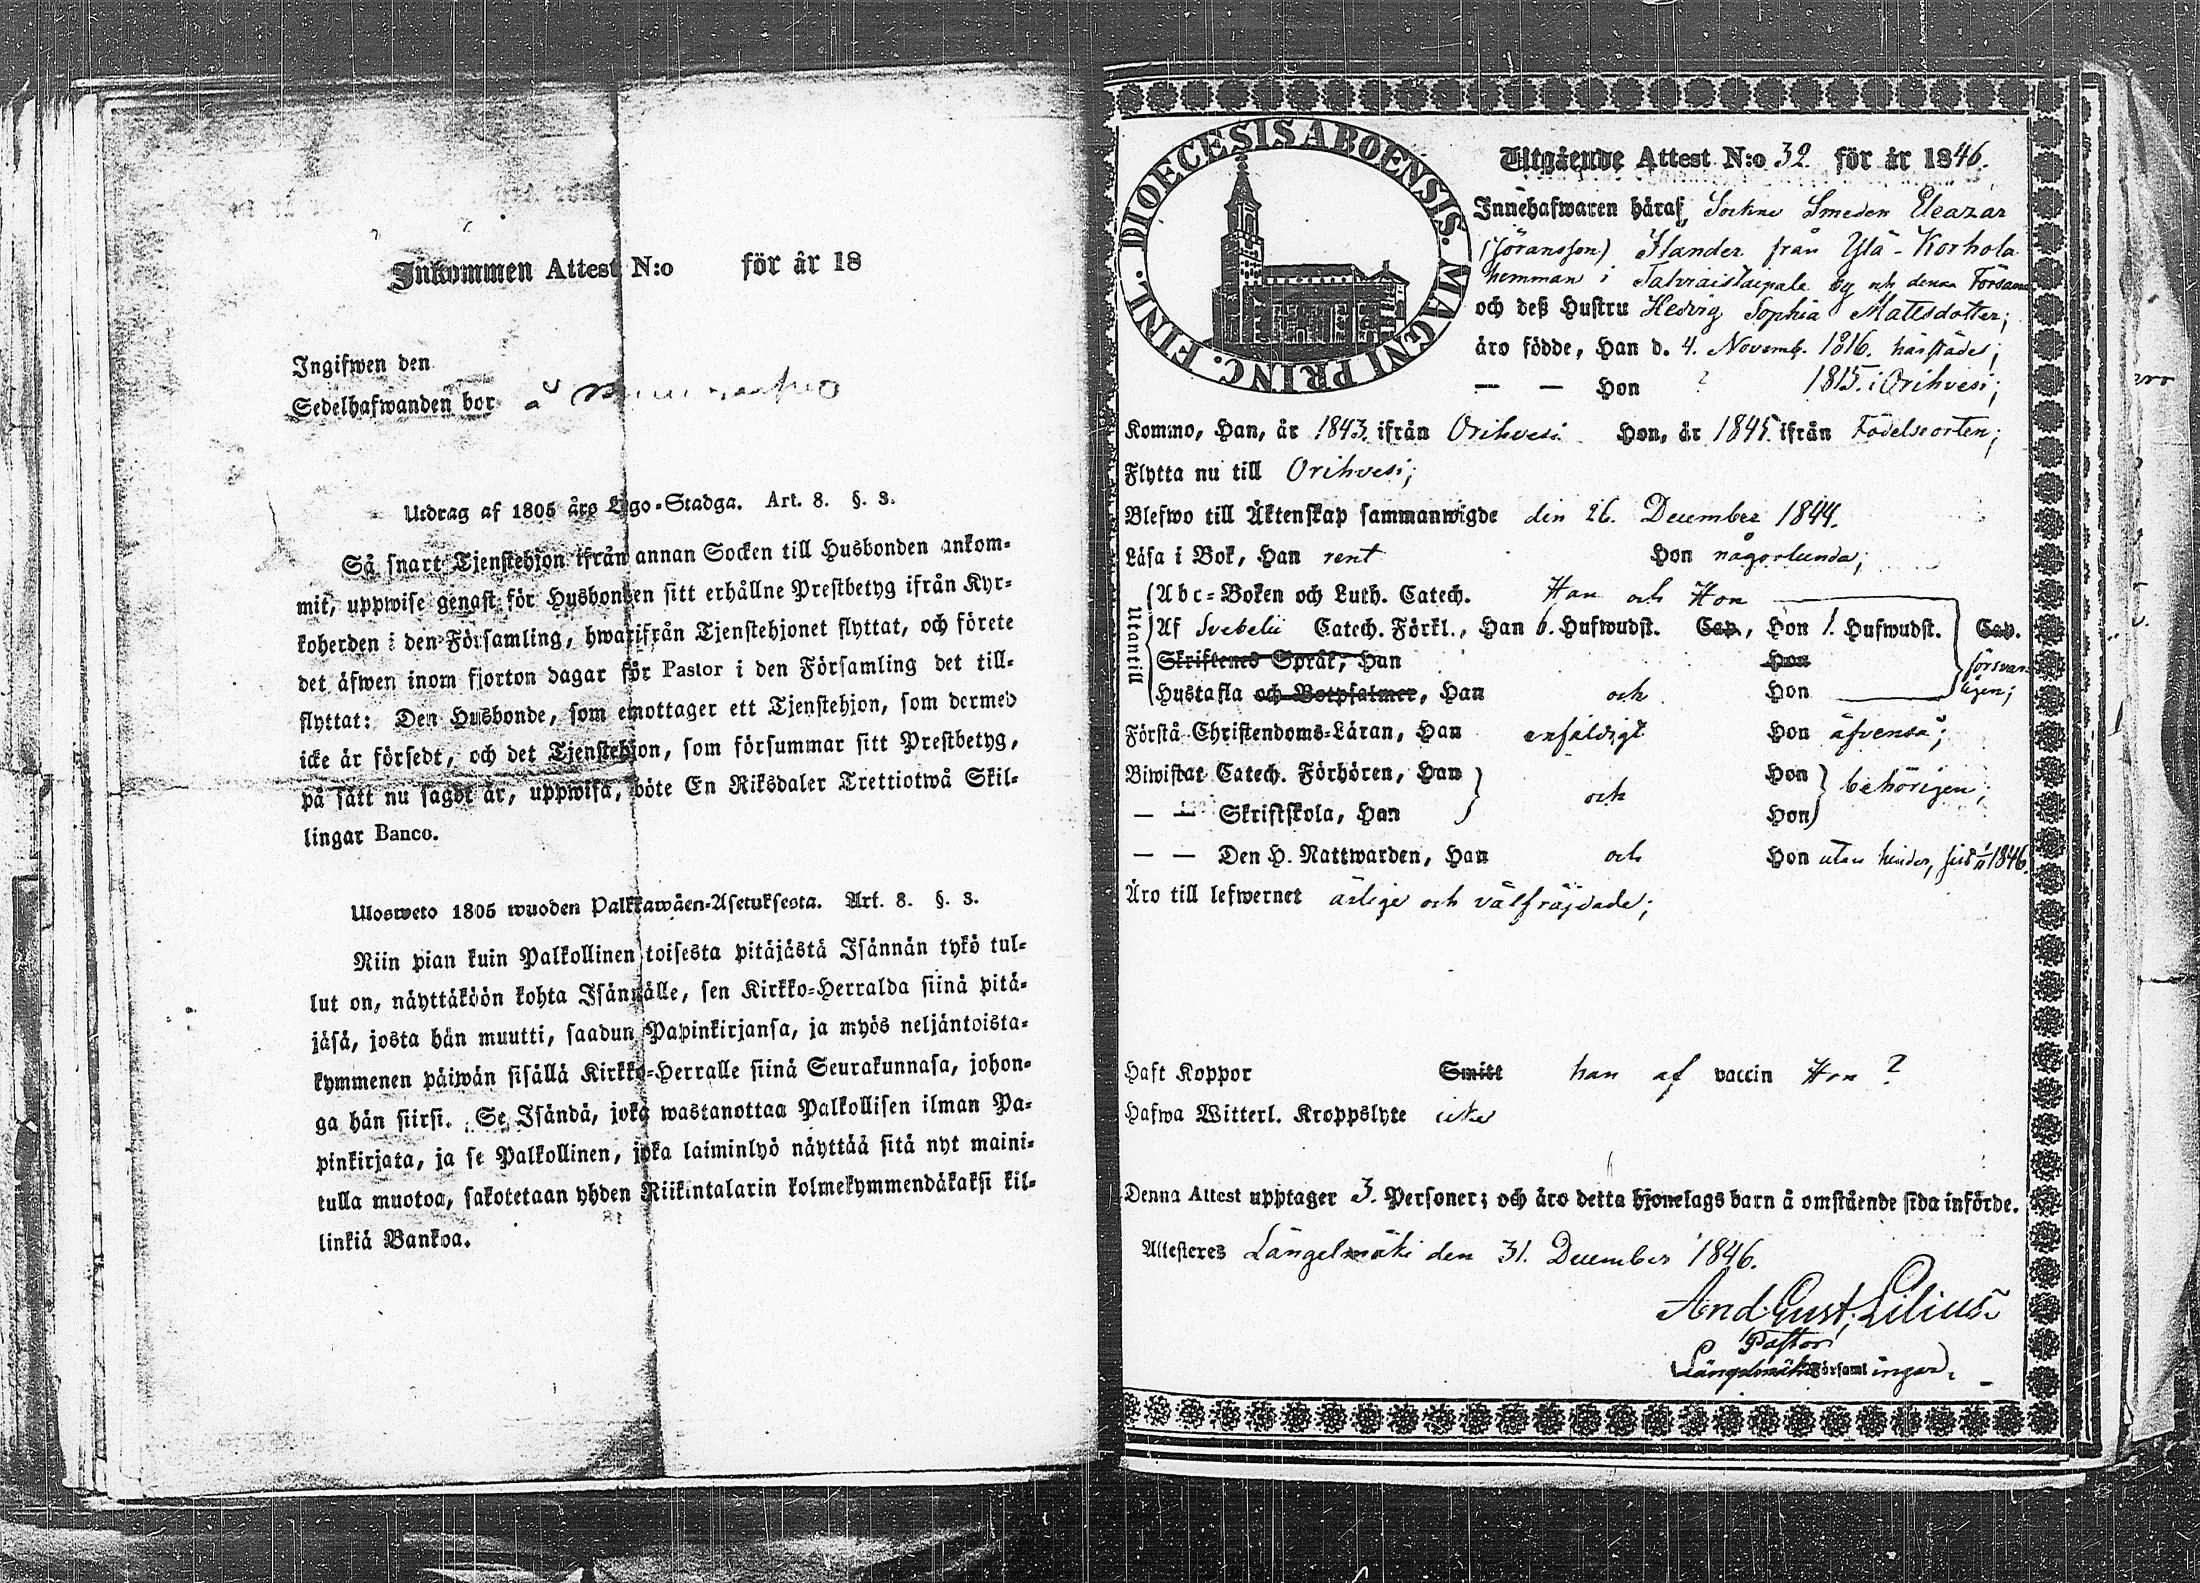 Inkommen Attest N:o för år 18
Ingifwen den
Sedelhafwanden bor å
Utdrag af 1805 års Lego-Stadga. Art. 8. §. 3.
Så snart Tjenstehjon ifrån annan Socken till Husbonden ankom-
mit, uppwise genast för Husbonden sitt erhållne Prestbetyg ifrån Kyr-
koherden i den Församling, hwarifrån Tjenstehjonet flyttat, och förete
det äfwen inom fjorton dagar för Pastor i den Församling det till-
flyttat: Den Husbonde, som emottager ett Tjenstehjon, som dermed
icke är försedt, och det Tjenstehjon, som försummar sitt Prestbetyg,
på sätt nu sagdt är, uppwisa, böte En Riksdaler Trettiotwå Skil-
lingar Banco.
Ulosweto 1805 wuoden Palkkawäen-Asetuksesta. Art. 8. §. 3.
Niin pian kuin Palkollinen toisesta pitäjästä Isännän tykö tul-
lut on, näyttäköön kohta Isännälle, sen Kirkko-Herralda siinä pitä-
jäsä, josta hän muutti, saadun Papinkirjansa, ja myös neljäntoista-
kymmenen päiwän sisällä Kirkko-Herralle siinä Seurakunnasa, johon-
ga hän siirsi. Se Isändä, joka wastanottaa Palkollisen ilman Pa-
pinkirjata, ja se Palkollinen, joka laiminlyö näyttää sitä nyt maini-
tulla muotoa, sakotetaan yhden Riikintalarin kolmekymmendäkaksi kil-
linkiä Bankoa.
DIOECESIS ABOENSIS. MAGNI PRINC. FINL.
Utgående Attest N:o 32. för år 1846.
Innehafwaren häraf, Sockne Smeden Eleazar
(Göransson) Ilander från Ylä-Korhola
hemman i Talviaistaipale by och denna Församl.
och deß Hustru Hedvig Sophia Mattsdotter;
äro födde, Han d. 4. Novemb. 1816. härstädes;
— — Hon ? 1815. i Orihvesi;
Kommo, Han, år 1843. ifrån Orihvesi Hon, år 1845. ifrån Födelseorten;
Flytta nu till Orihvesi;
Blefwo till Äktenskap sammanwigde den 26. December 1844.
Läsa i Bok, Han rent Hon någorlunda;
Utantill
Abc-Boken och Luth. Catech. Han och Hon
Af Svebelii Catech. Förkl., Han 6. Hufwudst. Cap., Hon 1. Hufwudst. Cap.
Skriftenes Språk, Han Hon försvar-
Hustafla och Botpsalmer, Han och Hon ligen;
Förstå Christendoms-Läran, Han enfäldigt Hon äfvenså;
Biwistat Catech. Förhören, Han och Hon behörigen;
— — Skriftskola, Han Hon
— — Den H. Nattwarden, Han och Hon utan hinder, sid 1/11 1846.
Äro till lefwernet ärlige och välfräjdade;
Haft Koppor Smitt han af vaccin Hon ?
Hafwa Witterl. Kroppslyte icke
Denna Attest upptager 3. Personer; och äro detta hjonelags barn å omstående sida införde.
Attesteres Längelmäki den 31. December 1846.
And. Gust. Lilius
Pastor i
Längelmäki Församlingar.